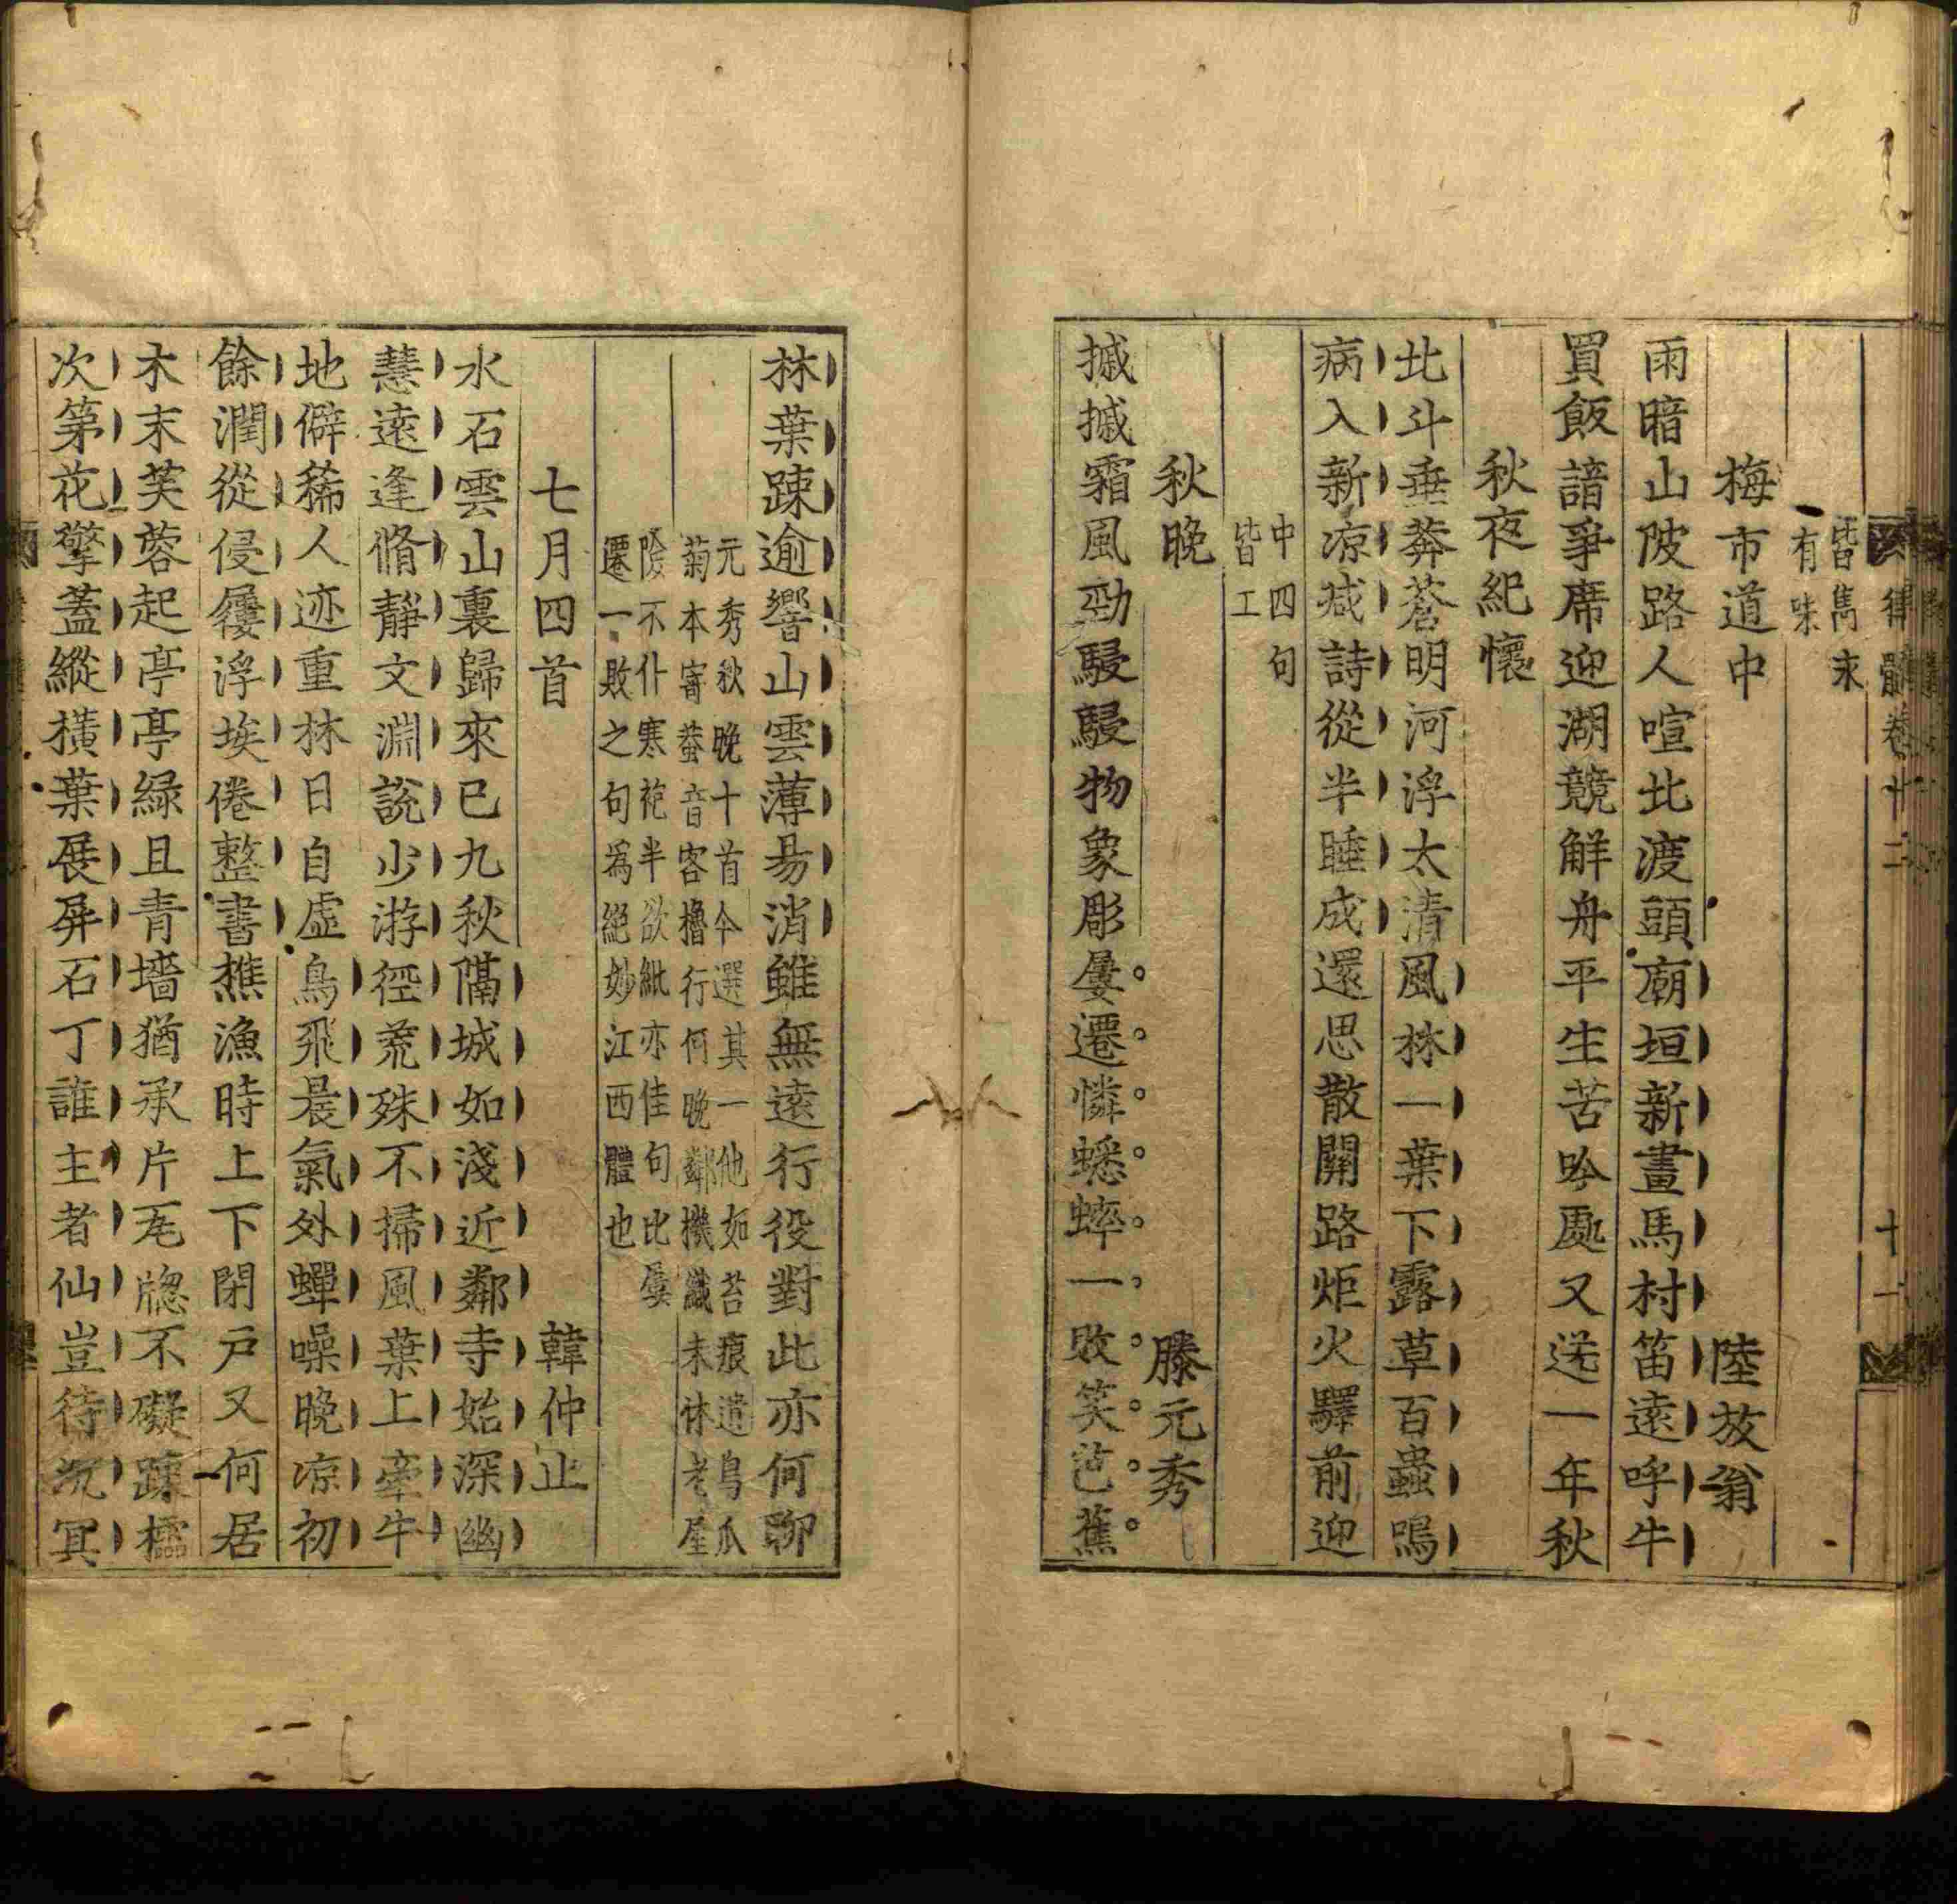 律髓卷十二
十一
皆雋末
有味
梅市道中　陸放翁
雨暗山陂路人喧北渡頭廟垣新畫馬村笛遠呼牛
買飯諳爭席迎湖競觧舟平生苦吟處又送一年秋
秋夜紀懷
北斗垂莽蒼明河浮太清風林一葉下露草百蟲鳴
病入新凉减詩從半睡成還思散關路炬火驛前迎
中四句
皆工
秋晚　滕元秀
摵摵霜風勁駸駸物象彫屢遷憐蟋蟀一敗笑芭蕉
林葉踈逾響山雲薄易消雖無遠行役對此亦何聊
元秀秋晚十首今選其一他如苔痕遺鳥瓜
菊本寄蛩音客櫓行何晚鄰機織未休老屋
險不仆寒袍半欲紕亦佳句比屢
遷一敗之句爲絕妙江西體也
七月四首　韓仲止
水石雲山裏歸來已九秋隔城如淺近鄰寺始深幽
慧遠逢脩靜文淵說少游徑荒殊不掃風葉上牽牛
地僻稀人迹重林日自虛鳥飛晨氣外蟬噪晚凉初
餘潤從侵屨浮埃倦整書樵漁時上下閉戶又何居
木末芙蓉起亭亭綠且青墻猶承片瓦牕不礙踈櫺
次第花擎蓋縱橫葉展屏石丁誰主者仙豈待沉冥